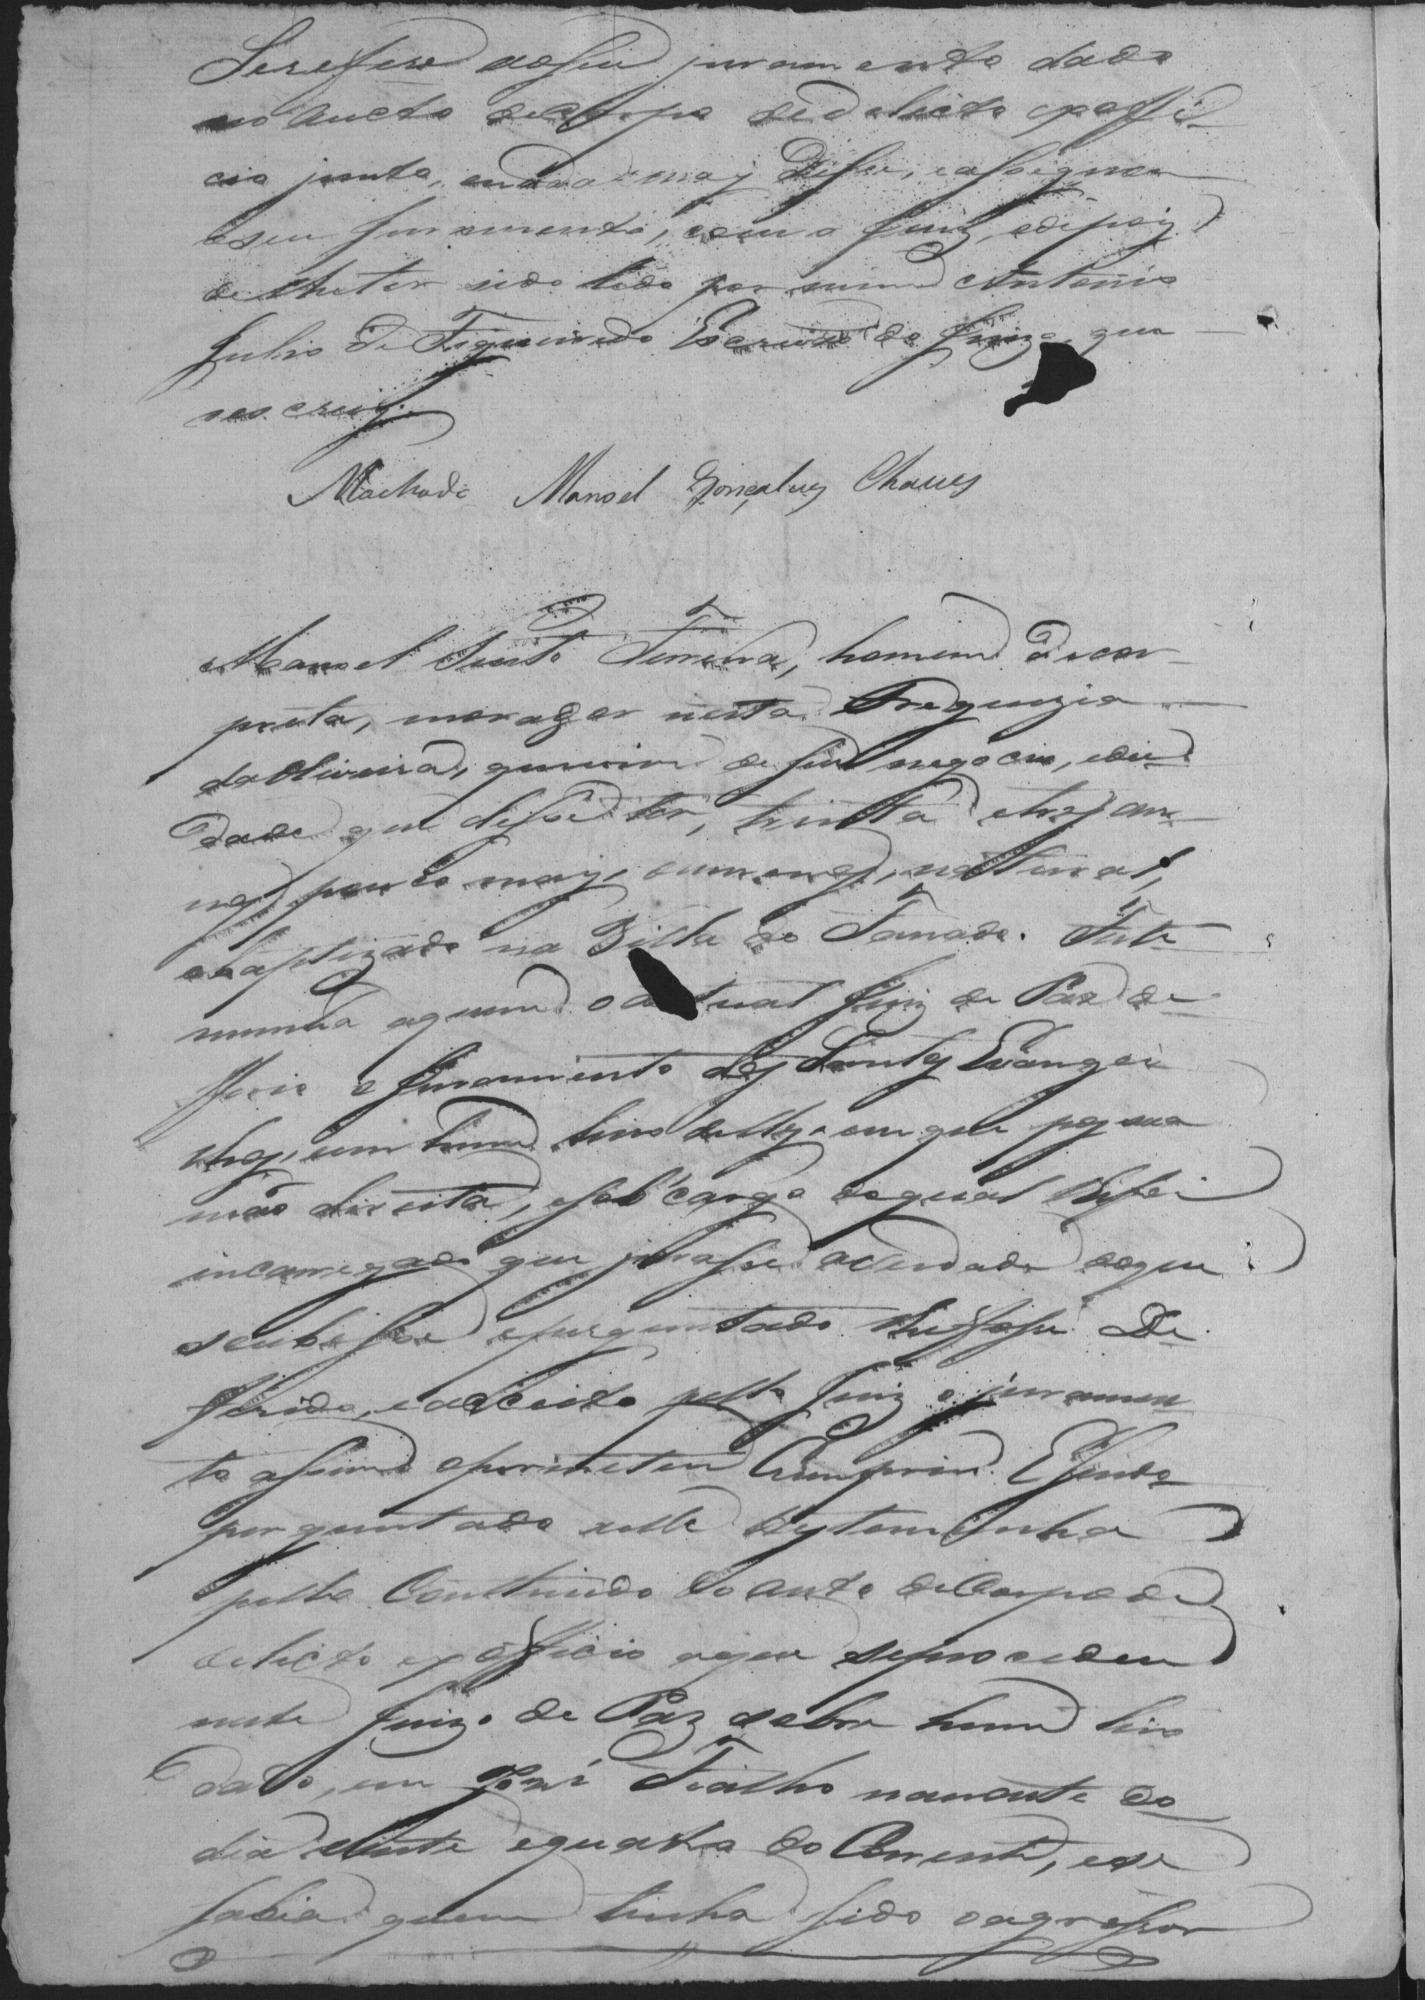 Serefere aoseu juramento dado
no aucto decorpo dedelicto exoffi-
cio junto, enada mais Disse, easignou
oseu juramento, com o Juiz, edepois
delheter sido lido por mim Antonio
Julio de Figueiredo Escrivão do Juizo, que
oescrevi.
Machado Manoel Gonçalves Chaves
Manoel Ferreira, homem Decor
preta, morador nesta Freguezia
daOliveira, quevive de seu negocio, eida
Dade que disse ter, trinta etres an
nos pouco mais, oumenos, natural,
ebaptizado na Villa do Fanado. Teste
munha aquem o actual Juiz de Paz de
ferio o Juramento dos Santos Evange
lhos, em hum livro delles em que pos sua
mão direita, esob cargo doqual lhefoi
incarregado que jurasse averdade doque
soubesse eperguntado lhefosse. De
ferido, eacceito pello Juiz o juramen
to assim oprometeu Cumprir. Esendo
perguntado elle testemunha
pello Contheudo do auto deCorpo de
delicto exofficio aque seprocedeu
neste Juizo de Paz sobre hum tiro
dado, em José Fialho nanoute do
dia vinte equatro do Corrente, ese
sabia quem tinha sido oagressor